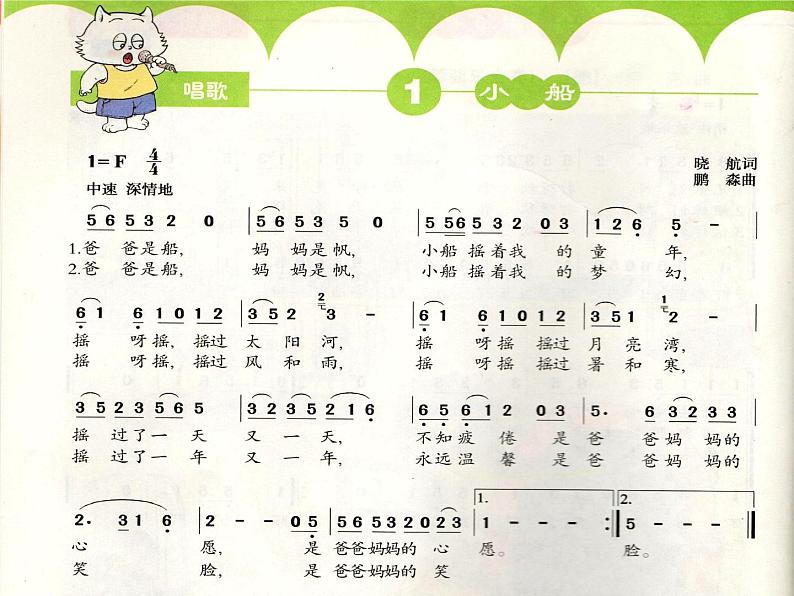 唱歌
1 小船
1=F 4/4
晓 航词
中速 深情地
鹏 淼曲
5 6 5 3 2 0 | 3 5 3 5 0 | 5 56 5 3 2 0 3 | 1 2 6 5 - |
1.爸 爸是船, 妈 妈是帆, 小船 摇着我 的 童 年,
2.爸 爸是船, 妈 妈是帆, 小船 摇着我 的 梦 幻,
6 1 6 1 0 1 2 | 3 5 2 3 - | 6 1 6 1 0 1 2 | 3 5 1 2 - |
摇 呀摇, 摇过 太 阳 河, 摇 呀摇, 摇过 月 亮 湾,
摇 呀摇, 摇过 风 和 雨, 摇 呀摇, 摇过 暑 和 寒,
3 5 2 3 5 6 5 | 3 5 2 3 2 1 6 | 6 6 5 6 1 2 0 3 | 5. 6 3 2 3 |
摇 过了一 天 又 一 天, 不知疲 倦 是 爸 爸妈 妈的
摇 过了一 年 又 一 年, 永远温 馨 是 爸 爸妈 妈的
1. 2.
2. 3 1 6 | 2 - - 0 5 | 5 6 5 3 2 0 2 3 | 1 - - - :| 5 - - - ‖
心 愿, 是 爸爸妈妈的 心 愿。 脸。
笑 脸, 是 爸爸妈妈的 笑